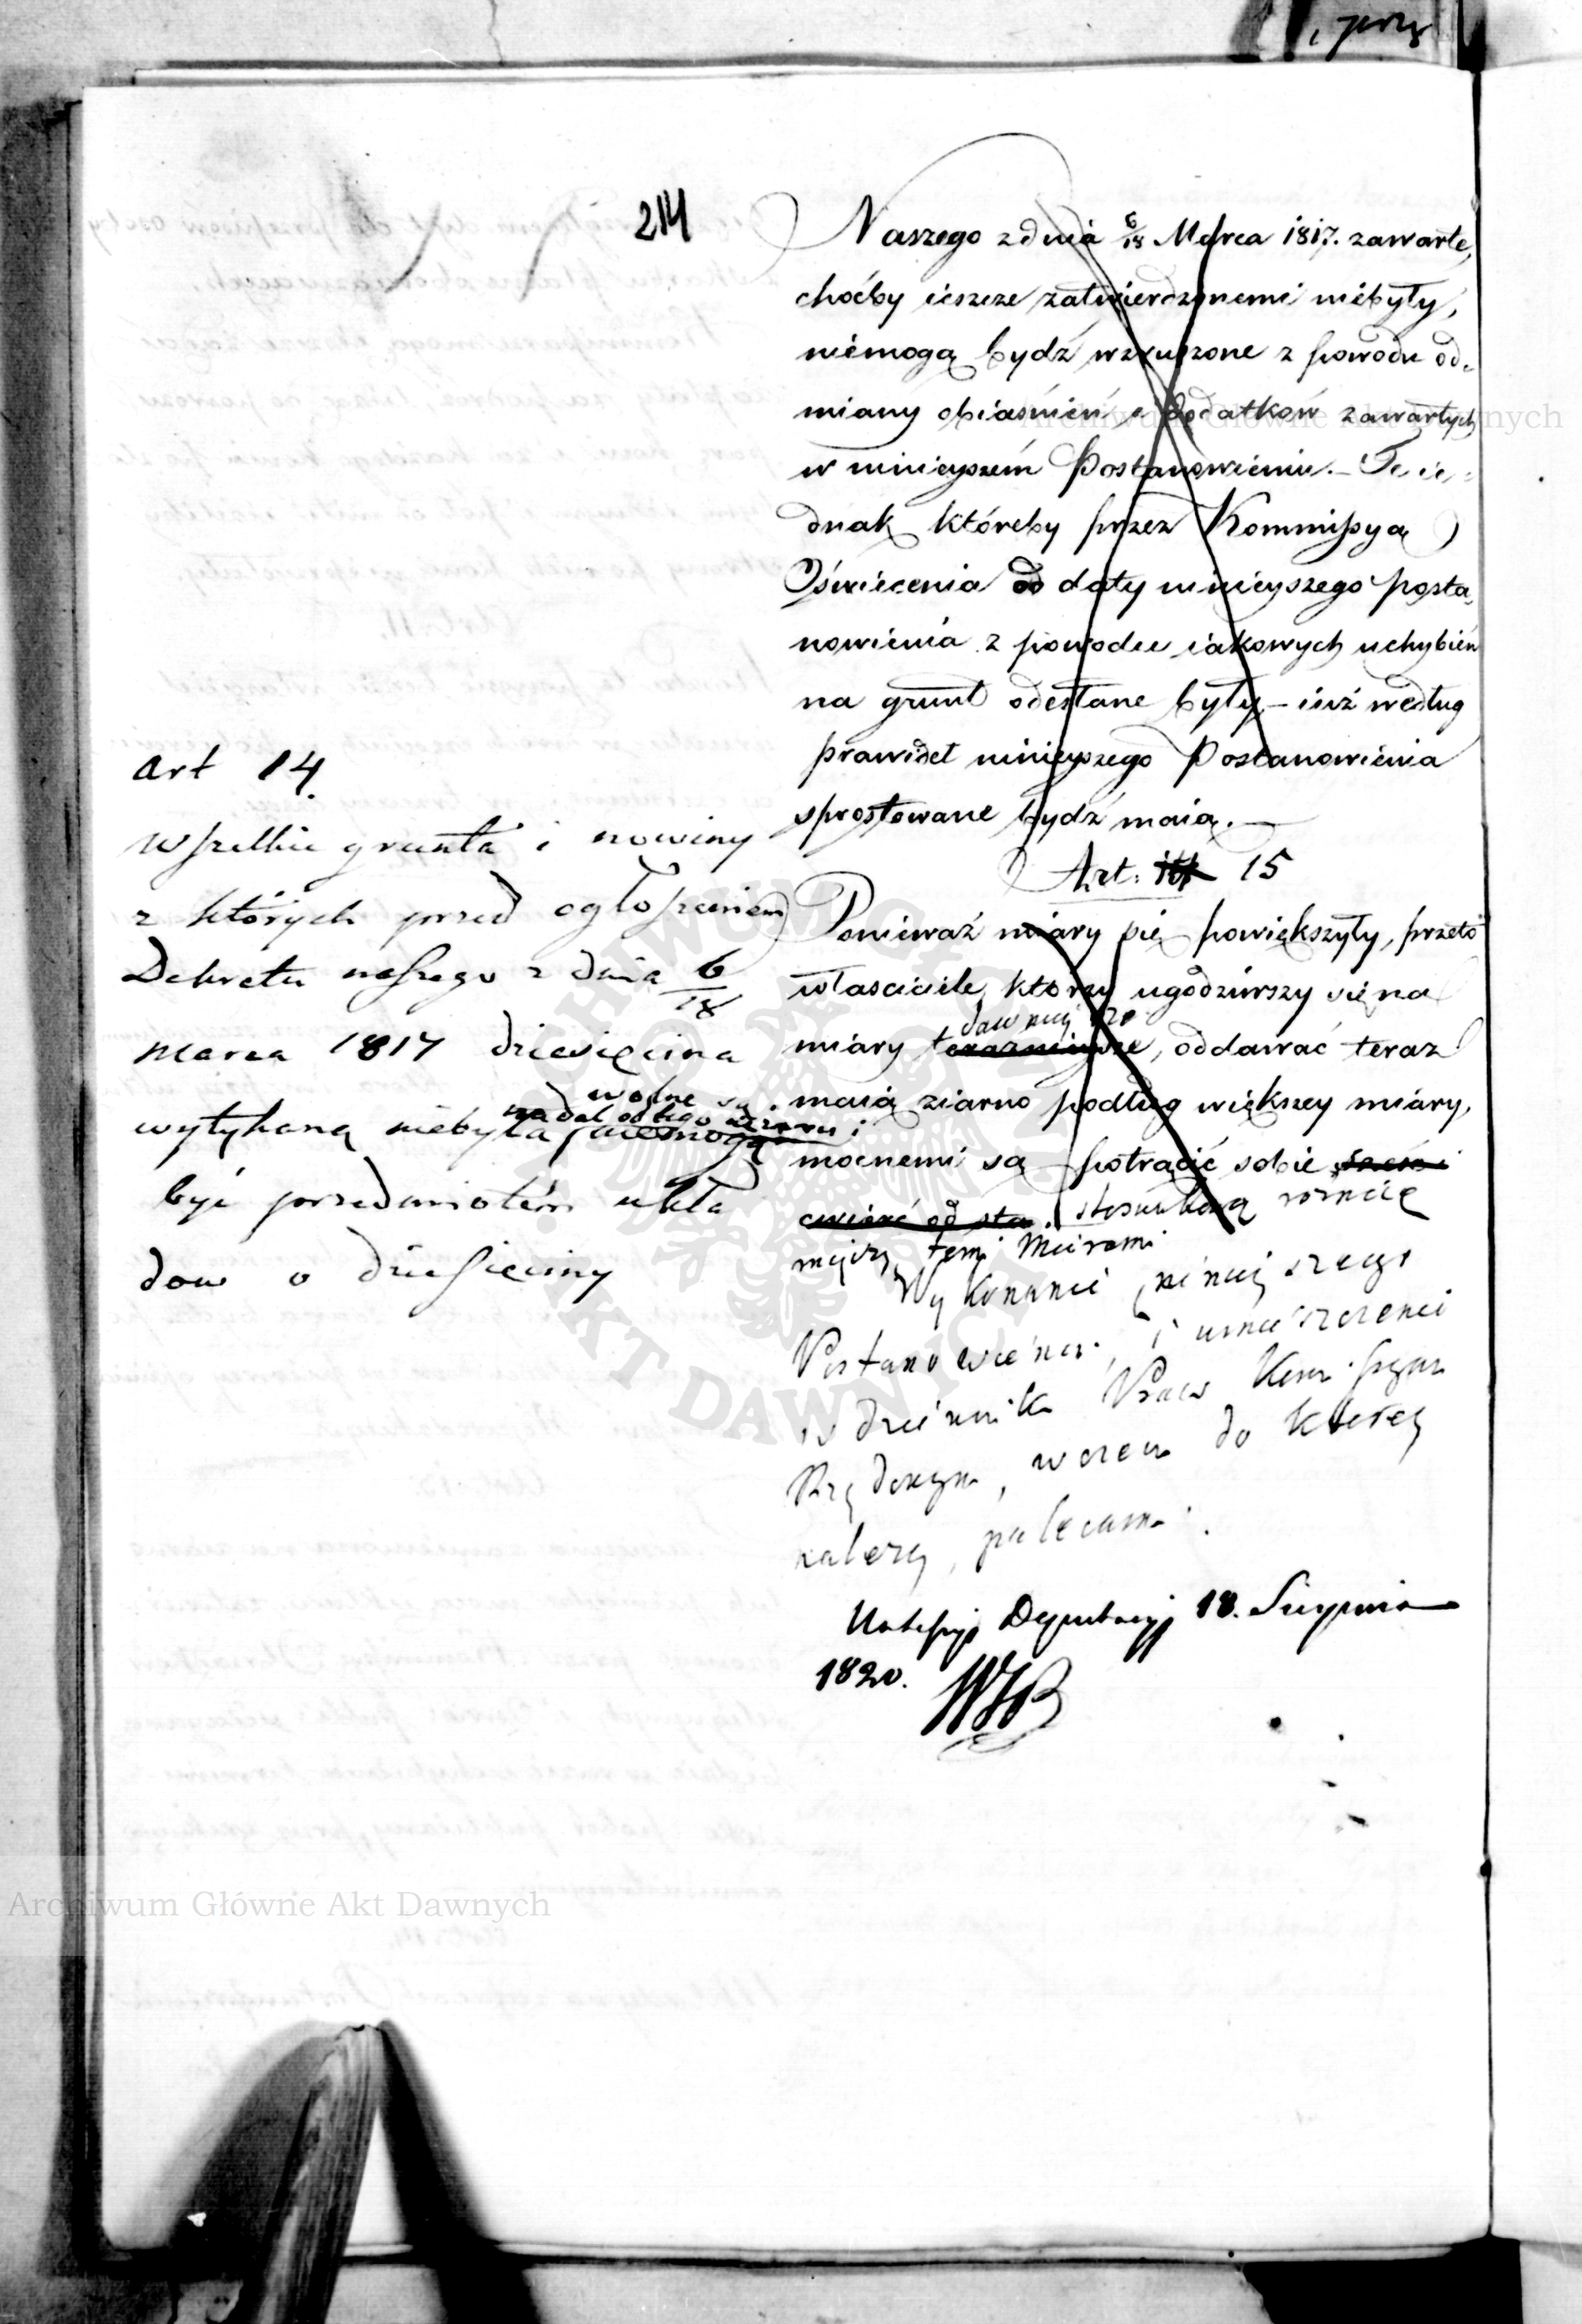 214
Naszego z dnia 6/18 Marca 1817. zawarte,
choćby ieszcze zatwierdzonemi niebyły,
niemogą bydź wzruszone z powodu od-
miany obiaśnień i dodatków zawartych
w ninieyszém Postanowieniu. – Te ie-
dnak któreby przez Kommissyą
Oświecenia od daty ninieyszego posta-
nowienia z powodu iakowych uchybień
na grunt odesłane były – iuż według
prawideł ninieyszego Postanowienia
sprostowane bydź maią. —
Art: 14 15
Ponieważ miary się powiększyły, przeto
właściciele, którzy ugodziwszy się na
dawniejsze
miary teraznieysze, oddawać teraz
maią ziarno podług większey miary,
mocnemi są potrącić sobie
ćwierć od sta. stosunkową różnicę
między temi Miarami
Wykonanie niniejszego
Postanowienia, i umieszczenie
w dzienniku Praw Komissyom
Rządowym, w czem do której
należy, polecamy.
Na Sessyi Deputacyi 18. Sierpnia
1820.
Art 14.
Wszelkie grunta i nowiny
z których przed ogłoszeniem
Dekretu naszego z dnia 6/18
marca 1817 dziesięcina
wolne są
nadal od tego ciężaru i
wytykaną niebyła, niemogą
być przedmiotém ukła
dow o dziesięciny
Archiwum Główne Akt Dawnych
Archiwum Główne Akt Dawnych
ARCHIWUM GŁÓWNE AKT DAWNYCH